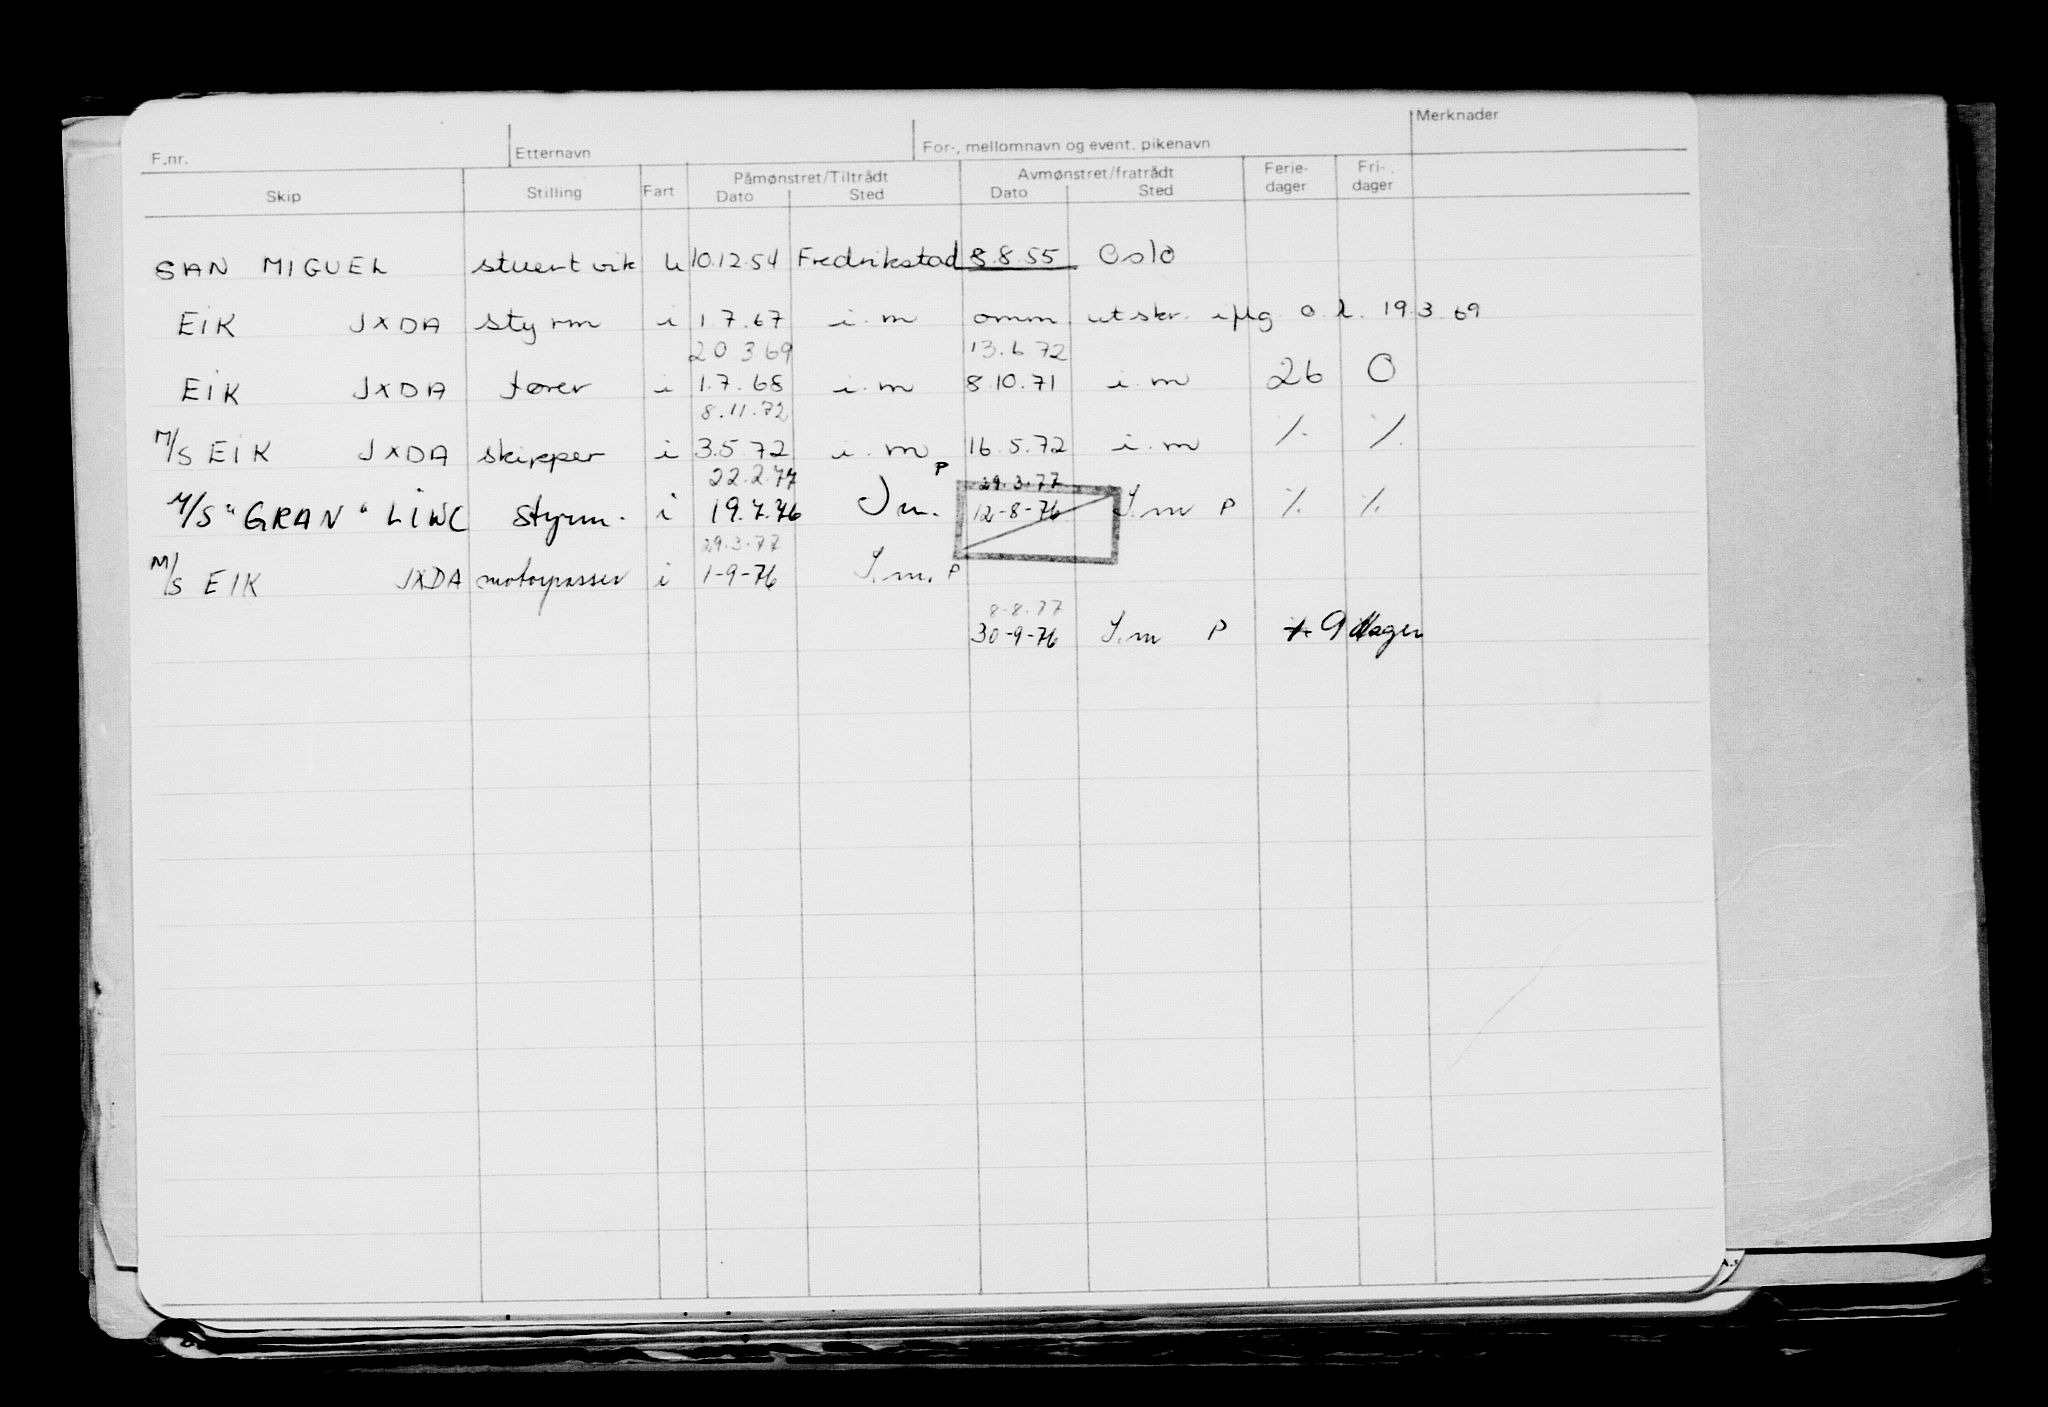 F.nr. Etternavn For-, mellomnavn og event. pikenavn Merknader
Skip Stilling Fart Påmønstret/Tiltrådt Avmønstret/fratrådt Ferie- Fri-
Dato Sted Dato Sted dager dager
SAN MIGUEL stuert vik u 10.12.54 Fredrikstad 8.8.55 Oslo
EIK JXDA styrm i 1.7.67 i.m omm. utskr. iflg. o.k. 19.3.69
20.3.69 13.6.72
EIK JXDA fører i 1.7.68 i.m 8.10.71 i.m 26 0
8.11.72
M/S EIK JXDA skipper i 3.5.72 i.m 16.5.72 i.m ⁒ ⁒
22.2.77 P 29.3.77
M/S "GRAN" LIWC Styrm. i 19.7.76 I m. 12-8-76 I.m P ⁒ ⁒
29.3.77
M/S EIK JXDA motorpasser i 1-9-76 I.m. P
8.8.77
30-9-76 I.m P ⁒ 9 dager